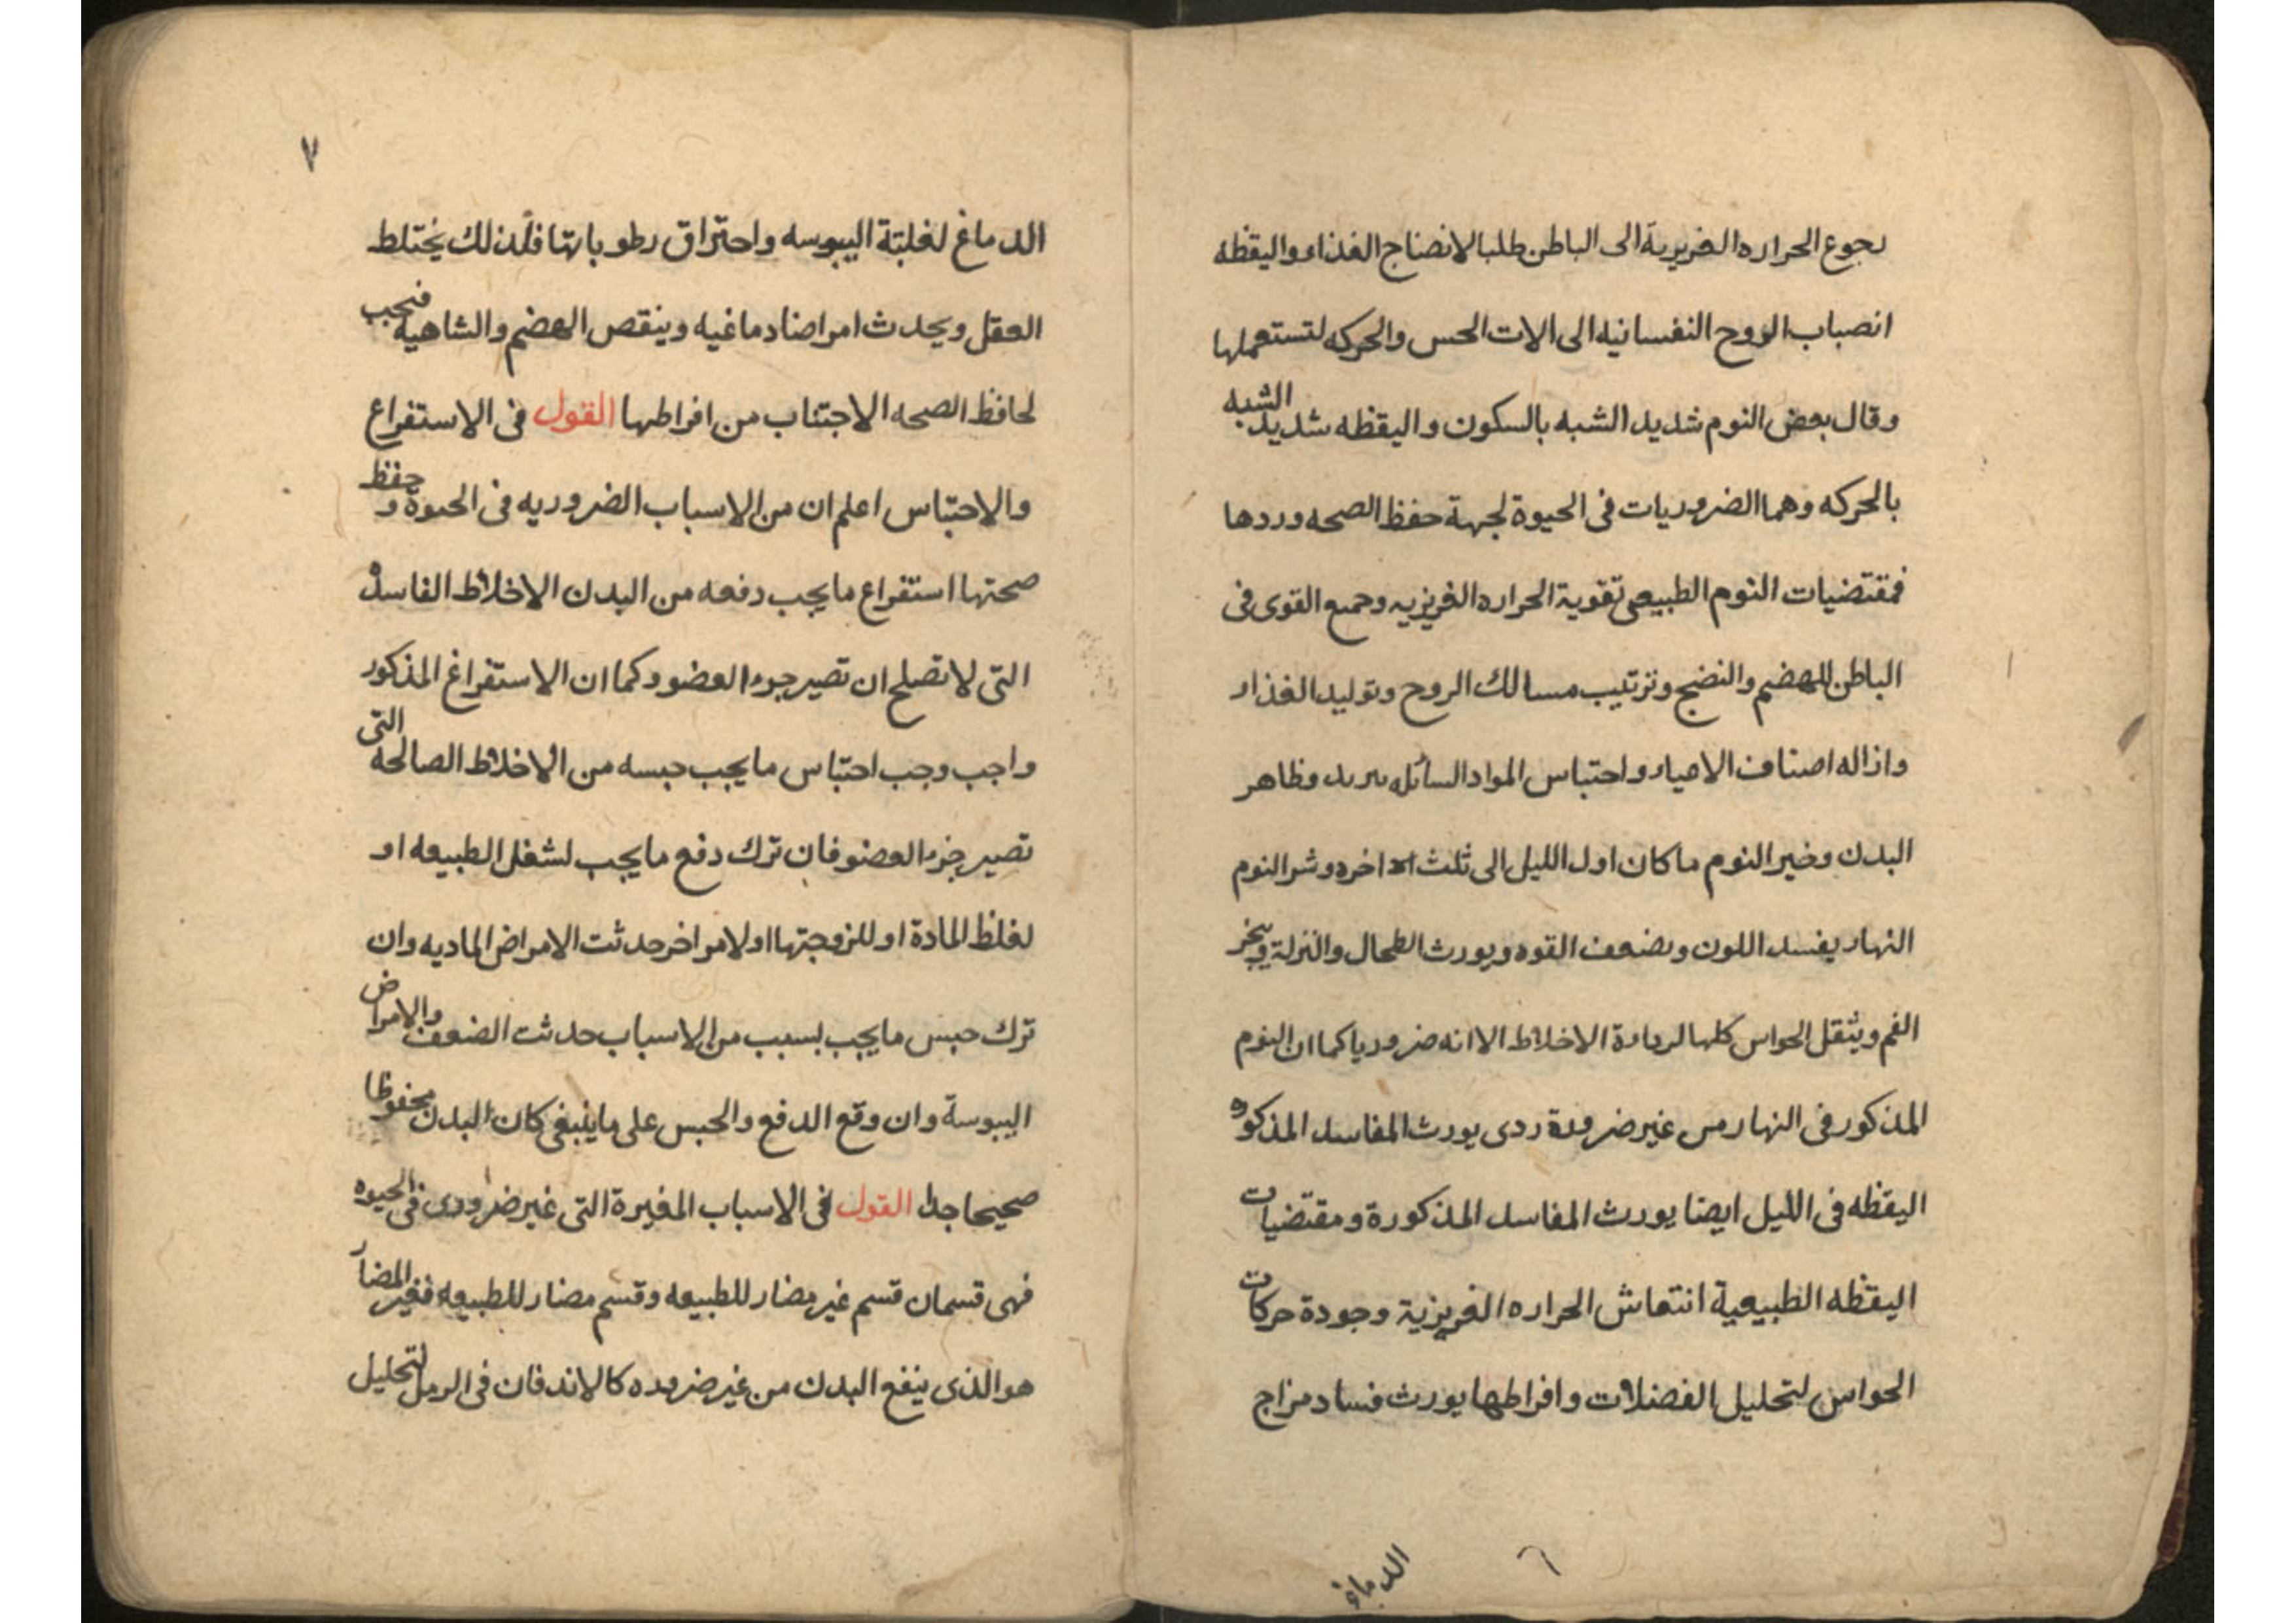 رجوع الحراره الغريزية الى الباطن طلبا لانضاج الغذاء واليقظه
انصباب الروح النفسانيه الى الات الحس والحركه لتستعملها
وقال بعض النوم شديد الشبه بالسكون واليقظه شديد الشبه
بالحركه وهما الضروريات فى الحيوة لجهة حفظ الصحه وردها
فمقتضيات النوم الطبيعى تقوية الحراره الغريزيه وجميع القوى فى
الباطن للهضم والنضج وترتيب مسالك الروح وتوليد الغذاء
وازاله اصناف الاعياء واحتباس المواد السائله وظاهر
البدن وخير النوم ما كان اول الليل الى ثلث اخره وشر النوم
النهار يفسد اللون ويضعف القوه ويورث الطحال والنزلة ويبخر
الفم ويثقل الحواس كلها لرداءة الاخلاط الا انه ضروريا كما ان النوم
المذكور فى النهار من غير ضرورة ردى يورث المفاسد المذكوره
اليقظه فى الليل ايضا يورث المفاسد المذكورة ومقتضيات
اليقظه الطبيعية انتعاش الحراره الغريزية وجودة حركات
الحواس لتحليل الفضلات وافراطها يورث فساد مزاج
الدماغ
٦
٧
الدماغ لغلبة اليبوسه واحتراق رطوباتها فلذلك يختلط
العقل ويحدث امراضا دماغيه وينقص الهضم والشاهيه فيجب
لحافظ الصحه الاجتناب من افراطها القول فى الاستفراغ
والاحتباس اعلم ان من الاسباب الضروريه فى الحيوة و حفظ
صحتها استفراغ ما يجب دفعه من البدن الاخلاط الفاسده
التى لا تصلح ان تصير جزء العضو وكما ان الاستفراغ المذكور
واجب وجب احتباس ما يجب حبسه من الاخلاط الصالحه التى
تصير جزء العضو فان ترك دفع ما يجب لشغل الطبيعه او
لغلظ المادة او للزوجتها او لامر اخر حدثت الامراض الماديه وان
ترك حبس ما يجب بسبب من الاسباب حدثت الضعف والامراض
اليبوسة وان وقع الدفع والحبس على ما ينبغى كان البدن محفوظا
صحيحا جدا القول فى الاسباب المغيرة التى غير ضرورى فى الحيوه
فهى قسمان قسم غير مضار للطبيعه وقسم مضار للطبيعه فغير المضار
هو الذى ينفع البدن من غير ضروره كالاندفان فى الرمل لتحليل